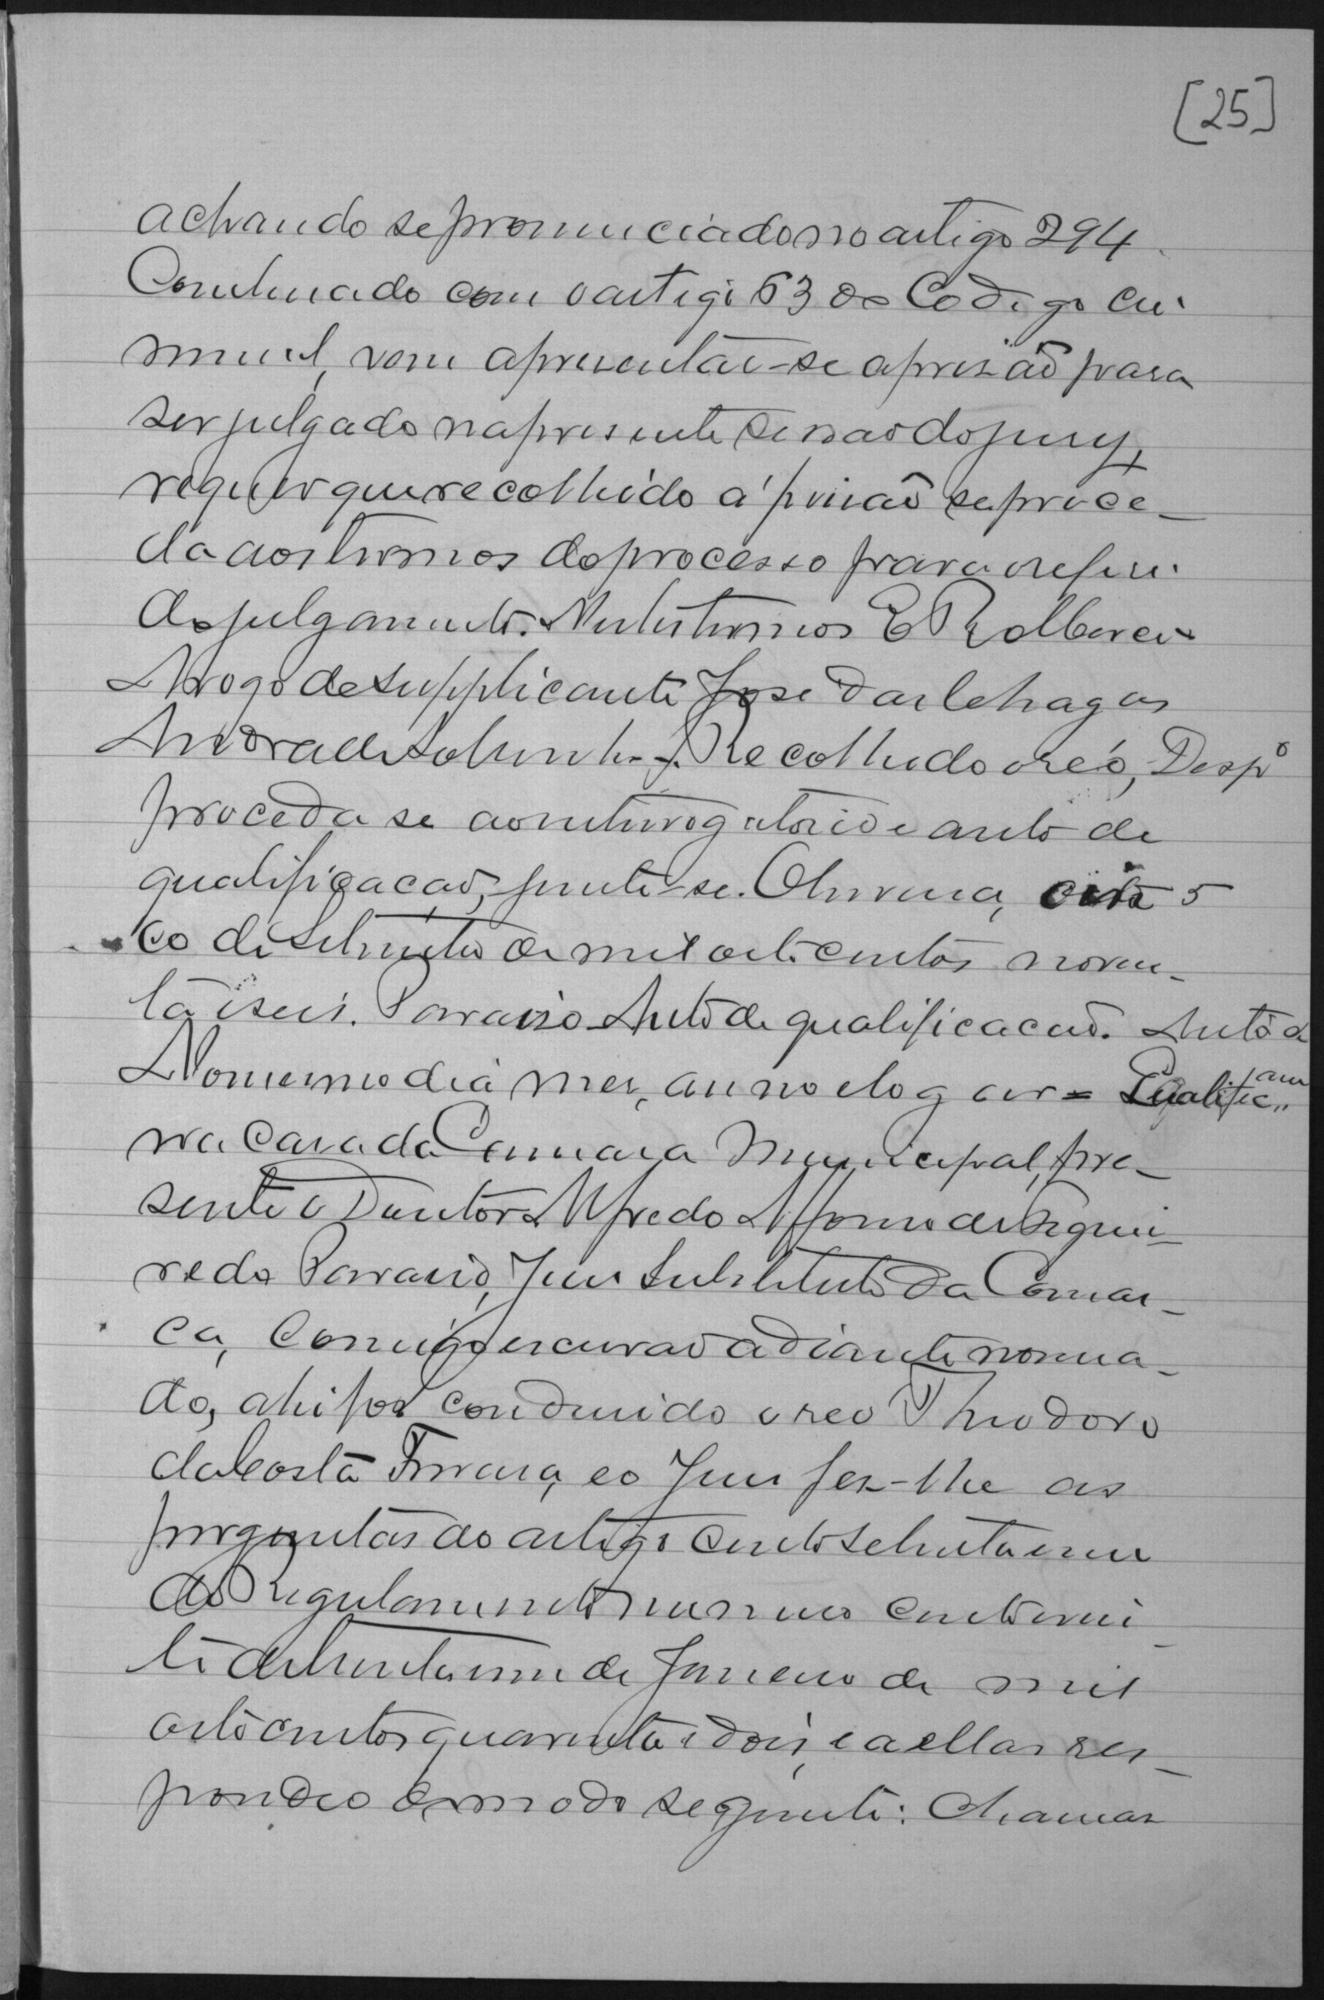 [25]
achando se pronunciado no artigo 294
Combinado com o artigo 63 do Codigo Cri
minal, vem apresentar-se a prisão para
ser julgado na presente sessão do jury,
requer que recolhido á prisão se proce-
da aos termos do processo para o referi
do julgamento. Nestes termos E. R. Mercê
A rogo de supplicante José das Chagas
Andrade Sobrinho. Recolhido o réo, Desp.º
proceda se ao interrogatorio e auto de
qualificação, junte-se. Oliveira, 5
co de Setembro de mil oito centos noven-
ta e seis. Paraizo Auto de qualificação. Auto d
No mesmo dia mez, anno e logar = Qualificam
na Casa da Camara Municipal, pre-
sente o Doutor Alfredo Affonso de Figuei-
redo Paraizo, Juiz Substituto da Comar-
ca, Comigo escrivão adiante nomea-
do, ahi foi conduzido o reo Theodoro
da Costa Ferreira, e o Juiz fez-lhe as
perguntas do artigo cento setenta e um
do Regulamento numero cento e vin
te de trinta e um de Janeiro de mil
oito centos quarenta e dois, e a ellas res-
pondeo do modo seguinte: Chamar